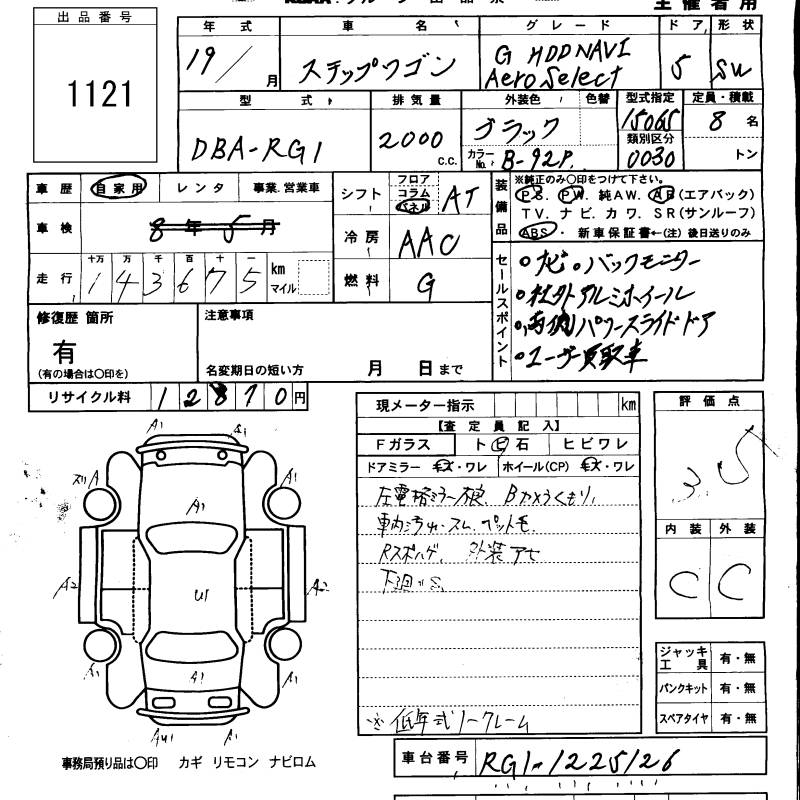 主催者用
出品番号
1121
年式 車名 グレード ドア 形状
19/ 月 ステップワゴン G HDD NAVI 5 SW
Aero Select
型式 排気量 外装色 色替 型式指定 定員・積載
DBA-RG1 2000 c.c. ブラック 15065 8 名
類別区分
カラーNo. B-92P. 0030 トン
車歴 自家用 レンタ 事業.営業車
シフト フロア コラム パネル AT
装備品 ※純正のみ〇印をつけて下さい。
PS. PW. 純AW. AB(エアバック)
TV. ナビ. カワ. SR(サンルーフ)
ABS ・ 新車保証書←(注)後日送りのみ
車検 8年5月
冷房 AAC
走行 十万 万 千 百 十 一
143675 km マイル
燃料 G
セールスポイント
・ナビ・バックモニター
・社外アルミホイール
・両側パワースライドドア
・ユーザー買取車
修復歴 箇所
有
(有の場合は〇印を)
注意事項
名変期日の短い方 月 日まで
リサイクル料 12870円
現メーター指示 km
【査定員記入】
Fガラス ト ビ 石 ヒビワレ
ドアミラー キズ・ワレ ホイール(CP) キズ・ワレ
車内汚れ・スレ.ペット毛
外装アセ
※低年式ノークレーム
評価点
3.5
内装 外装
C C
ジャッキ工具 有・無
パンクキット 有・無
スペアタイヤ 有・無
A1
A1
A1
A1
A2 U1 A2
A1 A1 A1
A1
事務局預り品は〇印 カギ リモコン ナビロム
車台番号 RG1-1225126